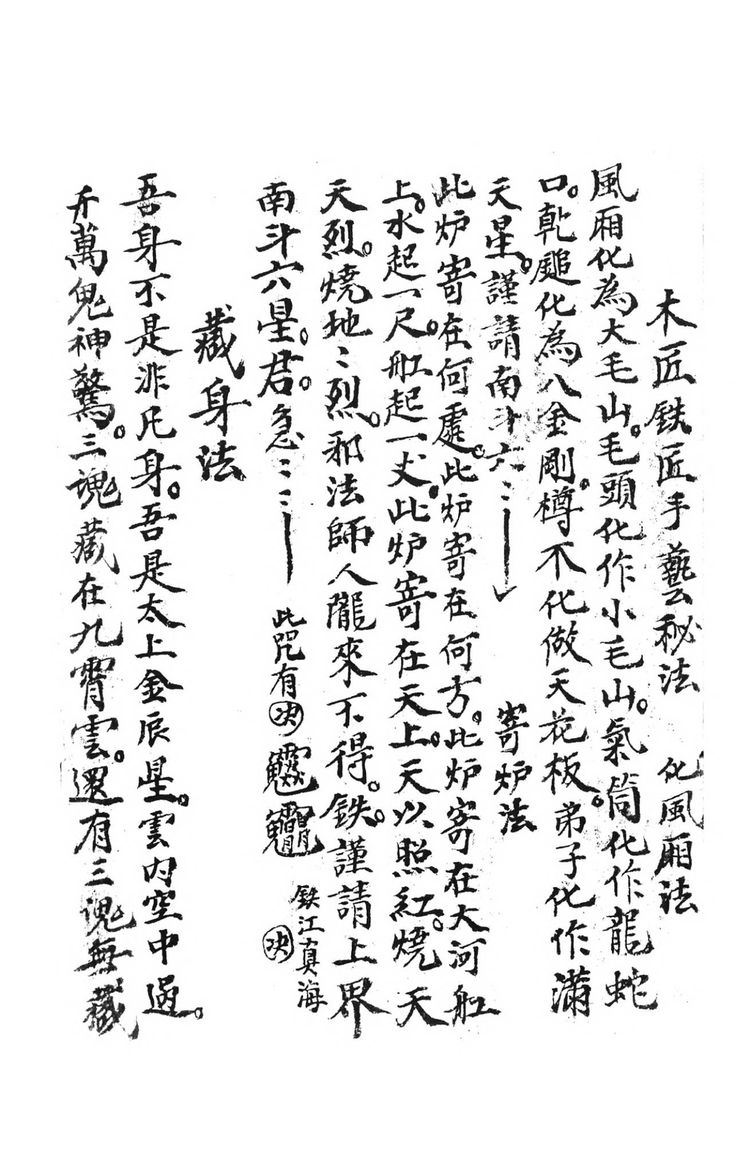 木匠鉄匠手藝秘法　化風厢法
風厢化為大毛山。毛頭化作小毛山。氣筒化作龍蛇
口。乾鎚化為八金剛。樽不化做天花板。弟子化作滿
天星。謹請南斗六〻　寄炉法
此炉寄在何處。此炉寄在何方。此炉寄在大河舡
上。水起一尺。舡起一丈。此炉寄在天上。天以照紅。燒天
天烈。燒地〻烈。邪法師人隴來不得。鉄謹請上界
南斗六星。君。急〻〻　此咒有決　鉄江真海　決
藏身法
吾身不是非凡身。吾是太上金辰星。雲内空中過。
千萬鬼神驚。三魂藏在九霄雲。還有三魂無藏